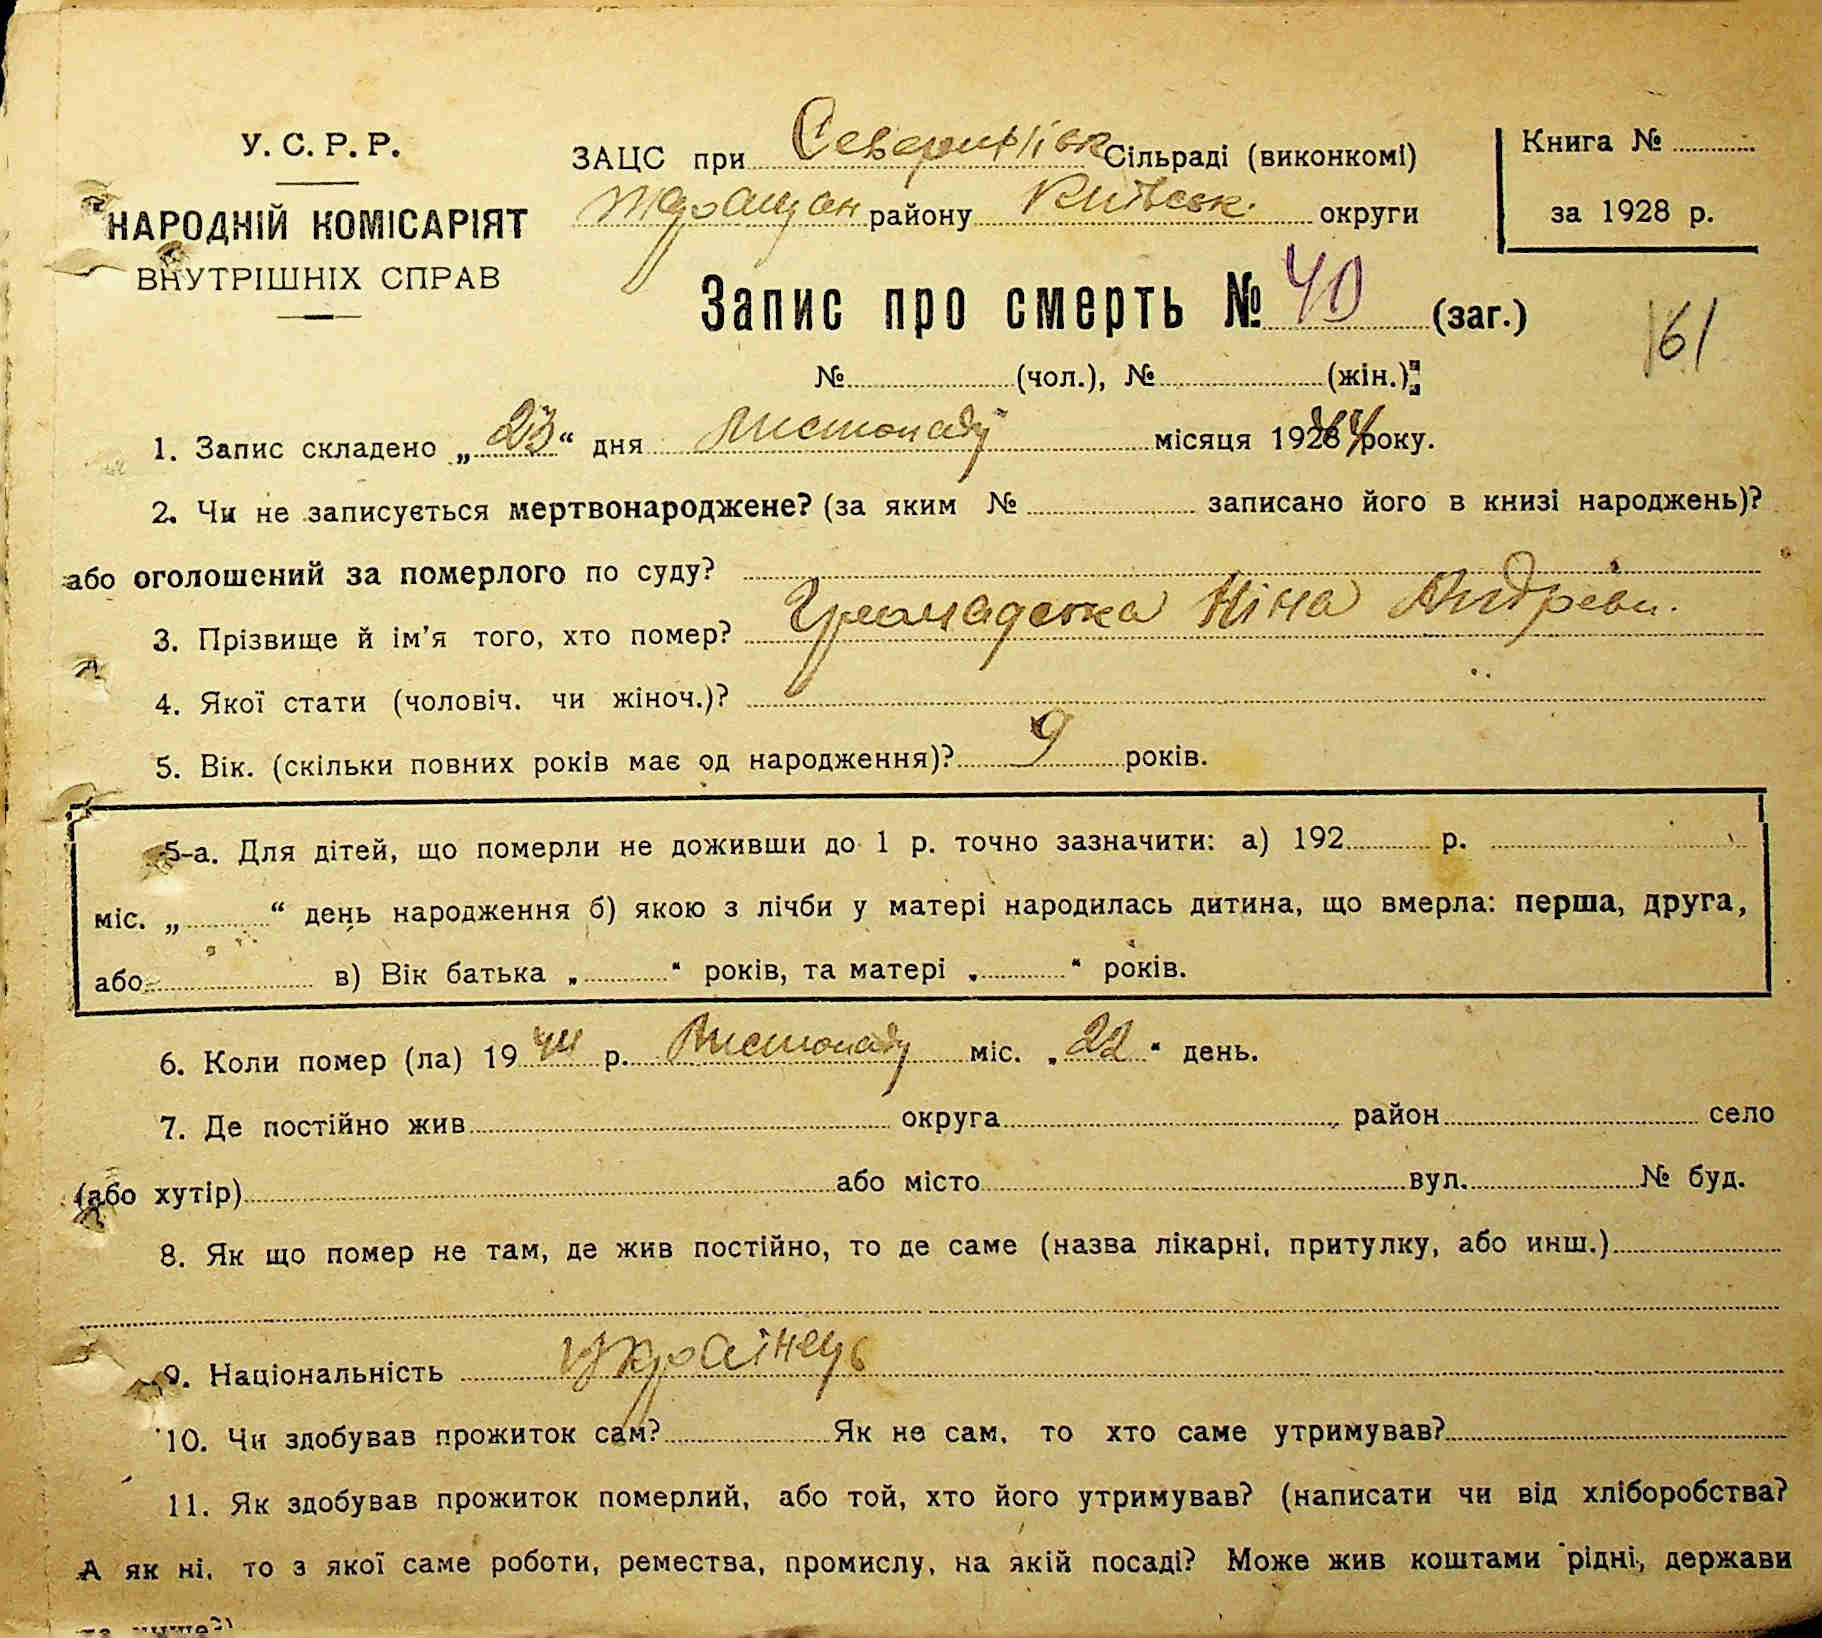 У. С. Р. Р.
НАРОДНІЙ КОМІСАРІЯТ
ВНУТРІШНІХ СПРАВ
ЗАЦС при Северинівск Сільраді (виконкомі)
Жаращан району Київськ. округи
Книга №
за 1928 р.
Запис про смерть № 40 (заг.)
161
№ (чол.), № (жін.)
1. Запис складено „23“ дня листопаду місяця 1928 44 року.
2. Чи не записується мертвонароджене? (за яким № записано його в книзі народжень)?
або оголошений за померлого по суду?
3. Прізвище й ім’я того, хто помер? Громадська Ніна Андреевн.
4. Якої стати (чоловіч. чи жіноч.)?
5. Вік. (скільки повних років має од народження)? 9 років.
5-а. Для дітей, що померли не доживши до 1 р. точно зазначити: а) 192 р.
міс. „ “ день народження б) якою з лічби у матері народилась дитина, що вмерла: перша, друга,
або в) Вік батька „ “ років, та матері „ “ років.
6. Коли помер (ла) 1944 р. Листопаду міс. „22“ день.
7. Де постійно жив округа район село
(або хутір) або місто вул. № буд.
8. Як що помер не там, де жив постійно, то де саме (назва лікарні, притулку, або инш.)
9. Національність Українець
10. Чи здобував прожиток сам? Як не сам, то хто саме утримував?
11. Як здобував прожиток померлий, або той, хто його утримував? (написати чи від хліборобства?
А як ні, то з якої саме роботи, ремества, промислу, на якій посаді? Може жив коштами рідні, держави